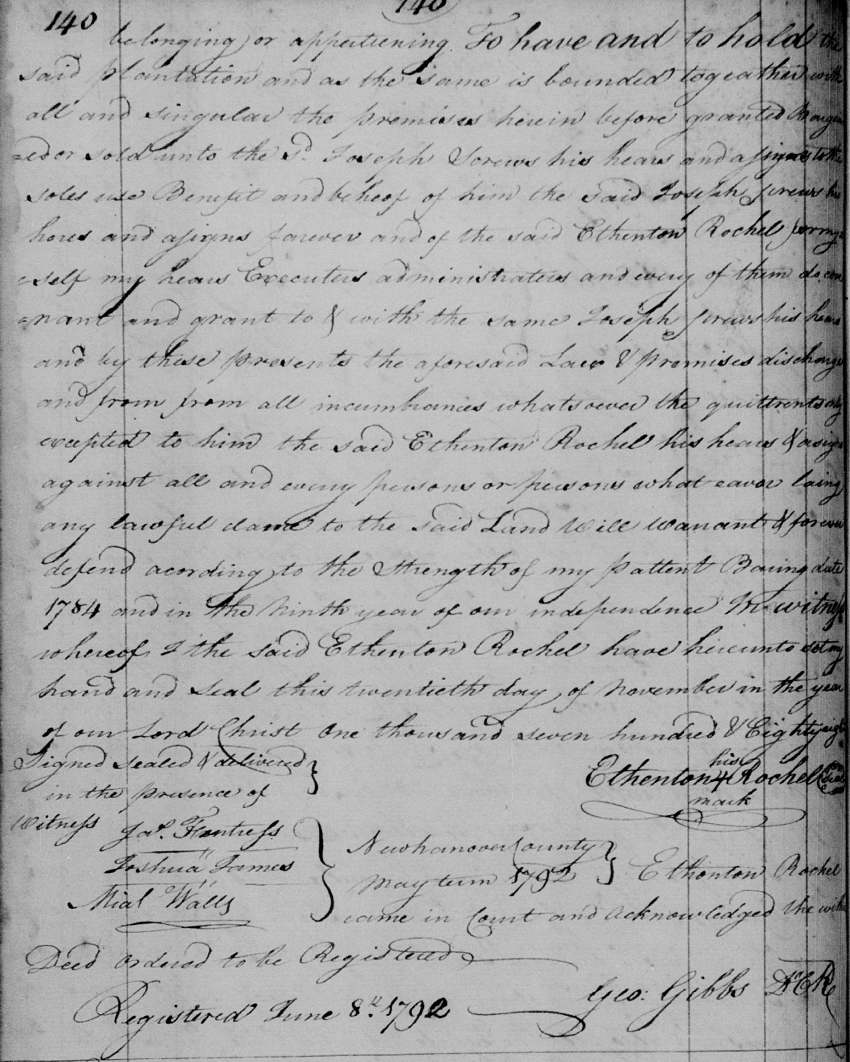 140
140
belonging or appertiening To have and to hold the
said plantation and as the same is bounded togeather with
all and singular the premises herein before granted Bargen
=ed or sold unto the Sd. Joseph Screws his hears and asigns to the
soles use Benefit and behoof of him the said Joseph Screws his
hares and asigns farever and of the said Ethenton Rochel for my
=self my hears Executers administraters and every of them do cove
=nant and grant to & with the same Joseph screws his hears
and by these presents the aforesaid Law & promises discharge
and from from all incumbrances whatsoever the quittrents only
excepted to him the said Ethenton Rochel his hears & asigns
against all and every persons or persons what eaver laing
any lawful clame to the said Land Will warrant & forever
defend acording to the Strength of my pattent Baring date
1784 and in the Ninth year of our independence In witness
whereof I the said Ethenton Rochel have hereunto set my
hand and seal this twentieth day of November in the year
of our Lord Christ one thousand seven hundred & Eighty eight
Signed sealed & delivered
in the presence of
Witness
Jas. Fentress
Joshua James
Mial Walls
Ethenton his 4 mark Rochel Seal
Newhanover County
May term 1792
Ethenton Rochel
came in Court and Acknowledged the with
Deed ordered to be Registered
Geo: Gibbs D. Clk
Registered June 8th. 1792